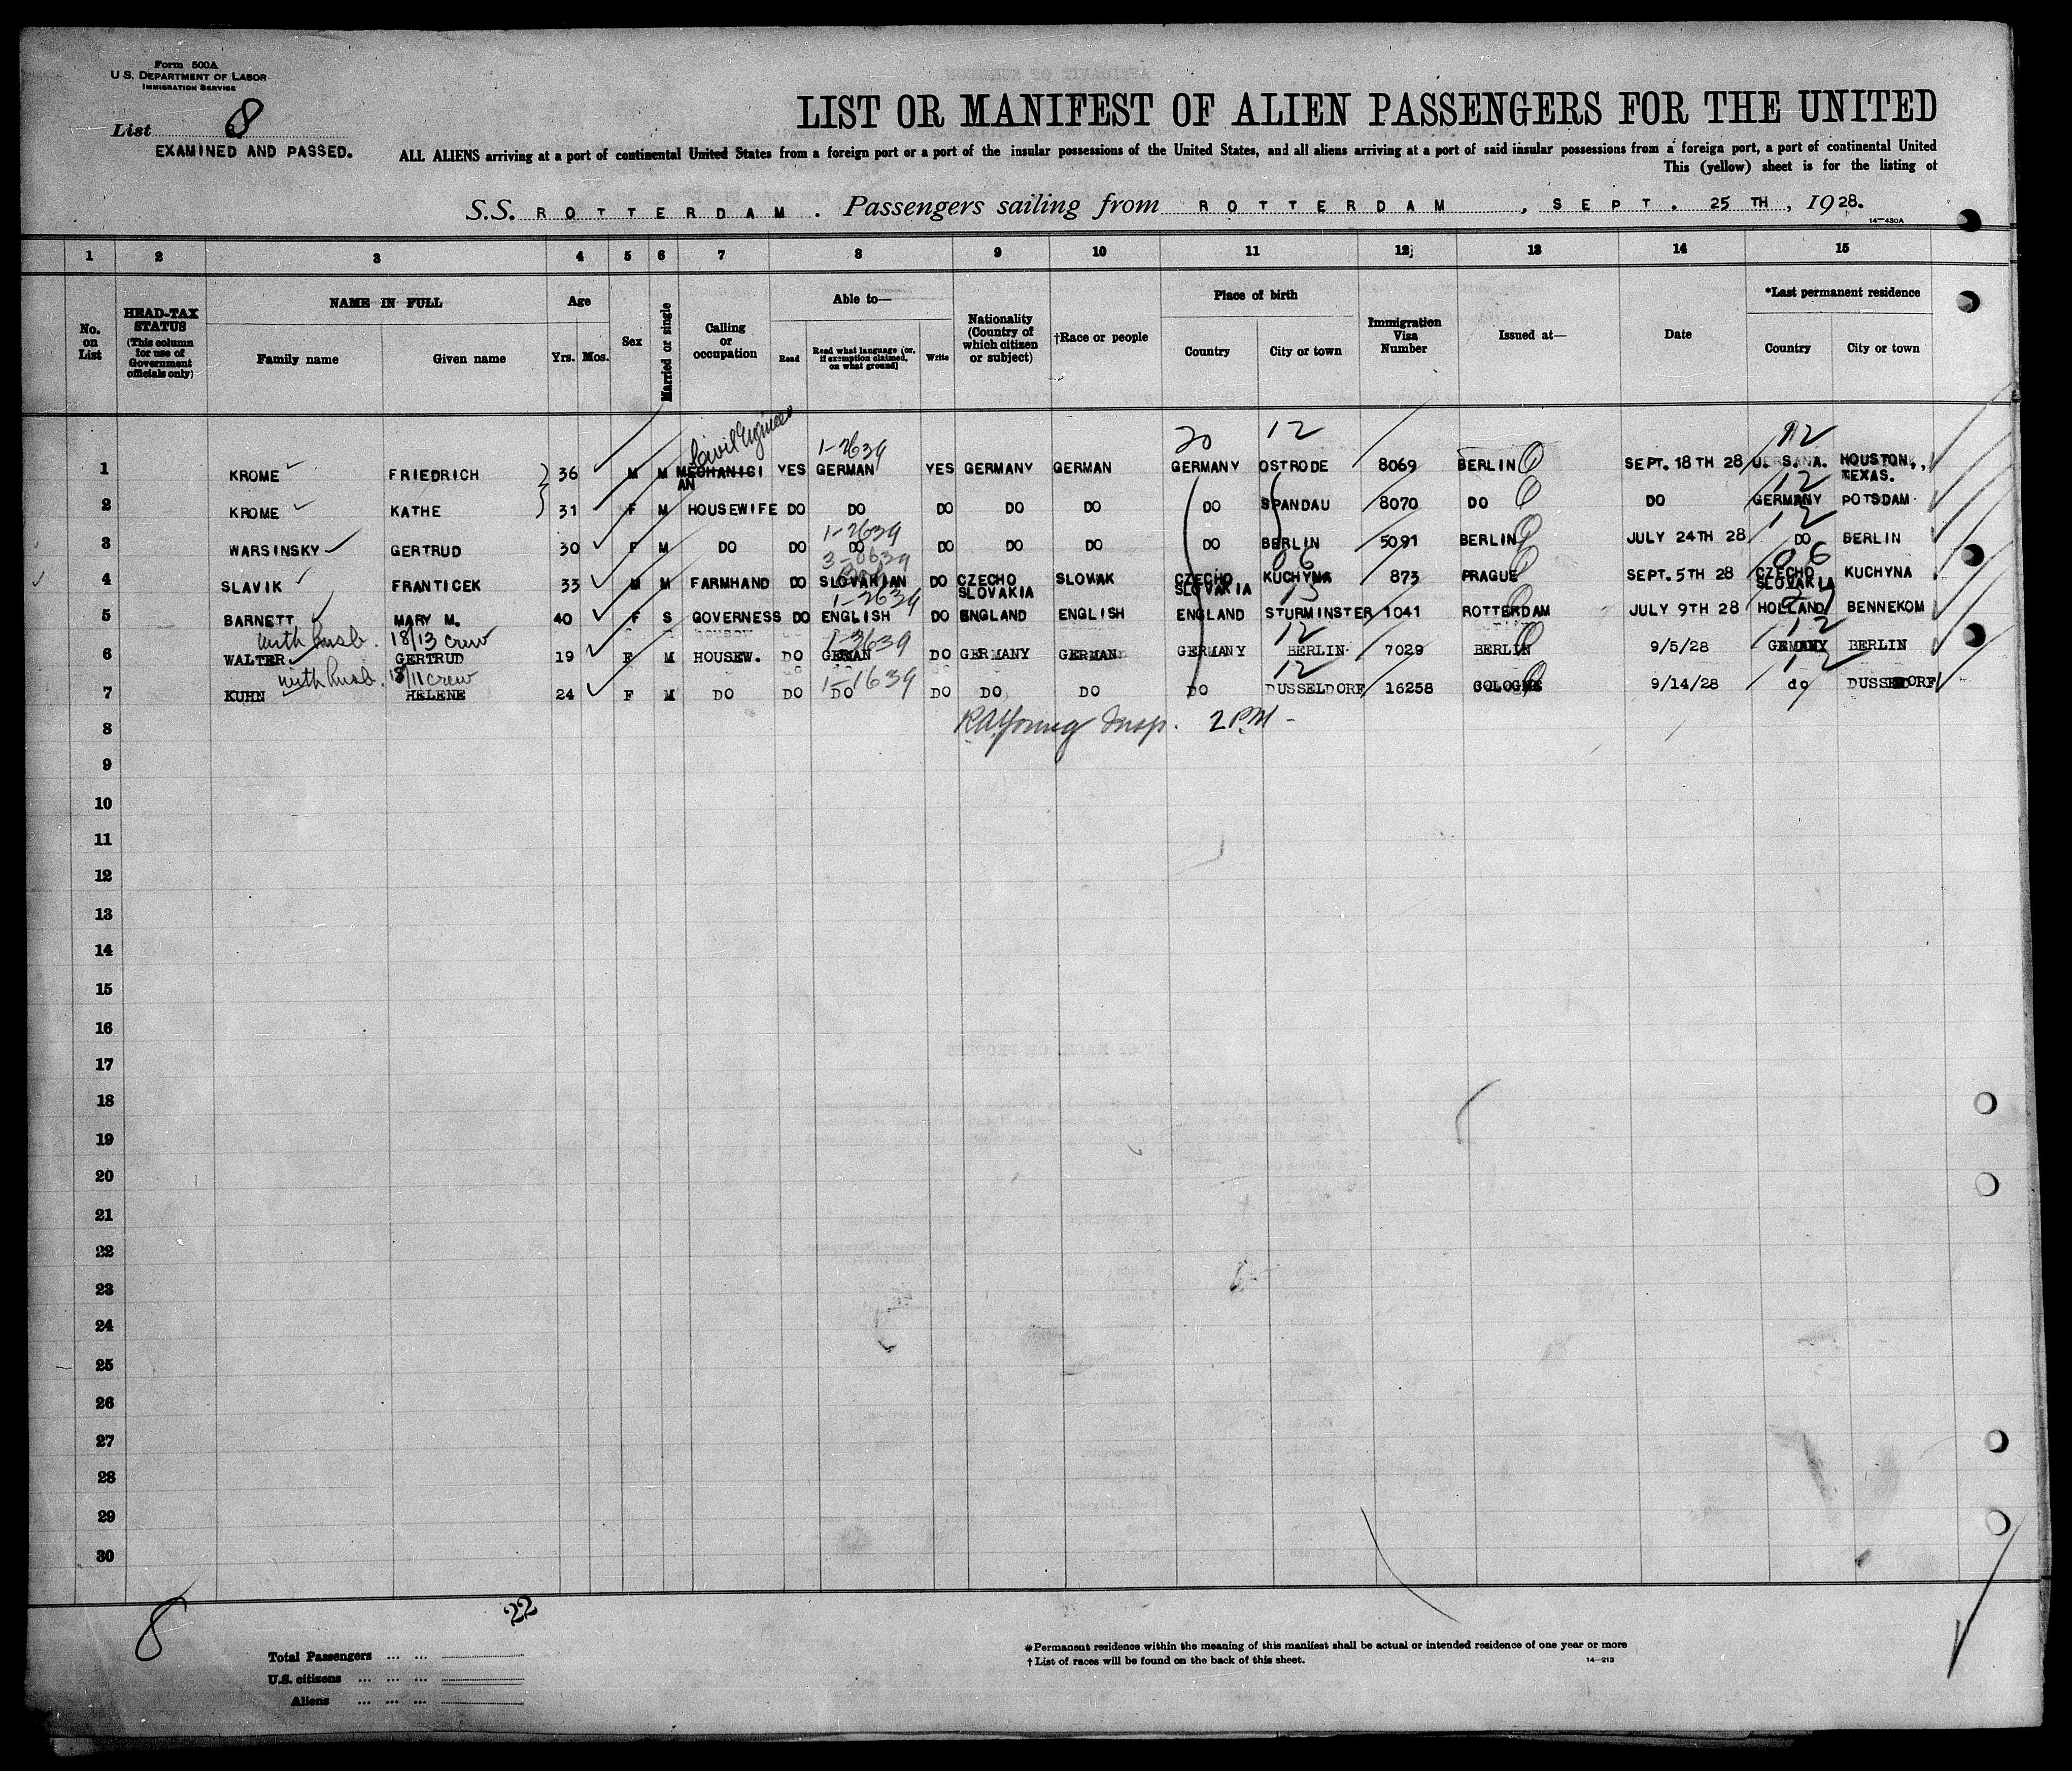 Form 500A
U. S. DEPARTMENT OF LABOR
IMMIGRATION SERVICE
List 8
EXAMINED AND PASSED.
LIST OR MANIFEST OF ALIEN PASSENGERS FOR THE UNITED
ALL ALIENS arriving at a port of continental United States from a foreign port or a port of the insular possessions of the United States, and all aliens arriving at a port of said insular possessions from a foreign port, a port of continental United
This (yellow) sheet is for the listing of
S.S. ROTTERDAM. Passengers sailing from ROTTERDAM, SEPT. 25 TH, 1928.
14-430A
1 2 3 4 5 6 7 8 9 10 11 12 13 14 15
No. on List
HEAD-TAX STATUS (This column for use of Government officials only)
NAME IN FULL
Family name Given name
Age
Yrs. Mos.
Sex
Married or single
Calling or occupation
Able to—
Read
Read what language [or, if exemption claimed, on what ground]
Write
Nationality (Country of which citizen or subject)
†Race or people
Place of birth
Country City or town
Immigration Visa Number
Issued at—
Date
*Last permanent residence
Country City or town
Civil Engineer 1-2639 20 12 12
1 KROME FRIEDRICH 36 M M MECHANICIAN YES GERMAN YES GERMANY GERMAN GERMANY OSTRODE 8069 BERLIN SEPT. 18TH 28 U. S. A. HOUSTON, TEXAS.
12
2 KROME KATHE 31 F M HOUSEWIFE DO DO DO DO DO DO SPANDAU 8070 DO DO GERMANY POTSDAM
1-2639 12
3 WARSINSKY GERTRUD 30 F M DO DO DO DO DO DO DO BERLIN 5091 BERLIN JULY 24TH 28 DO BERLIN
06 06
4 SLAVIK FRANTICEK 33 M M FARMHAND DO SLOVAKIAN DO CZECHO SLOVAKIA SLOWAK CZECHO SLOVAKIA KUCHYNA 873 PRAGUE SEPT. 5TH 28 CZECHO SLOVAKIA KUCHYNA
1-2639
5 BARNETT MARY M. 40 F S GOVERNESS DO ENGLISH DO ENGLAND ENGLISH ENGLAND STURMINSTER 1041 ROTTERDAM JULY 9TH 28 HOLLAND BENNEKOM
with husb. 18/13 crew 12 12
6 WALTER GERTRUD 19 F M HOUSEW. DO GERMAN DO GERMANY GERMAN GERMANY BERLIN 7029 BERLIN 9/5/28 GEMANY BERLIN
with husb. 18/11 crew 1-1639 12 12
7 KUHN HELENE 24 F M DO DO DO DO DO DO DO DUSSELDORF 16258 COLOGNE 9/14/28 do DUSSELDORF
8 R.A. Young Insp. 2 P.M -
9
10
11
12
13
14
15
16
17
18
19
20
21
22
23
24
25
26
27
28
29
30
8 22
Total Passengers
U.S. citizens
Aliens
*Permanent residence within the meaning of this manifest shall be actual or intended residence of one year or more
† List of races will be found on the back of this sheet.
14-213